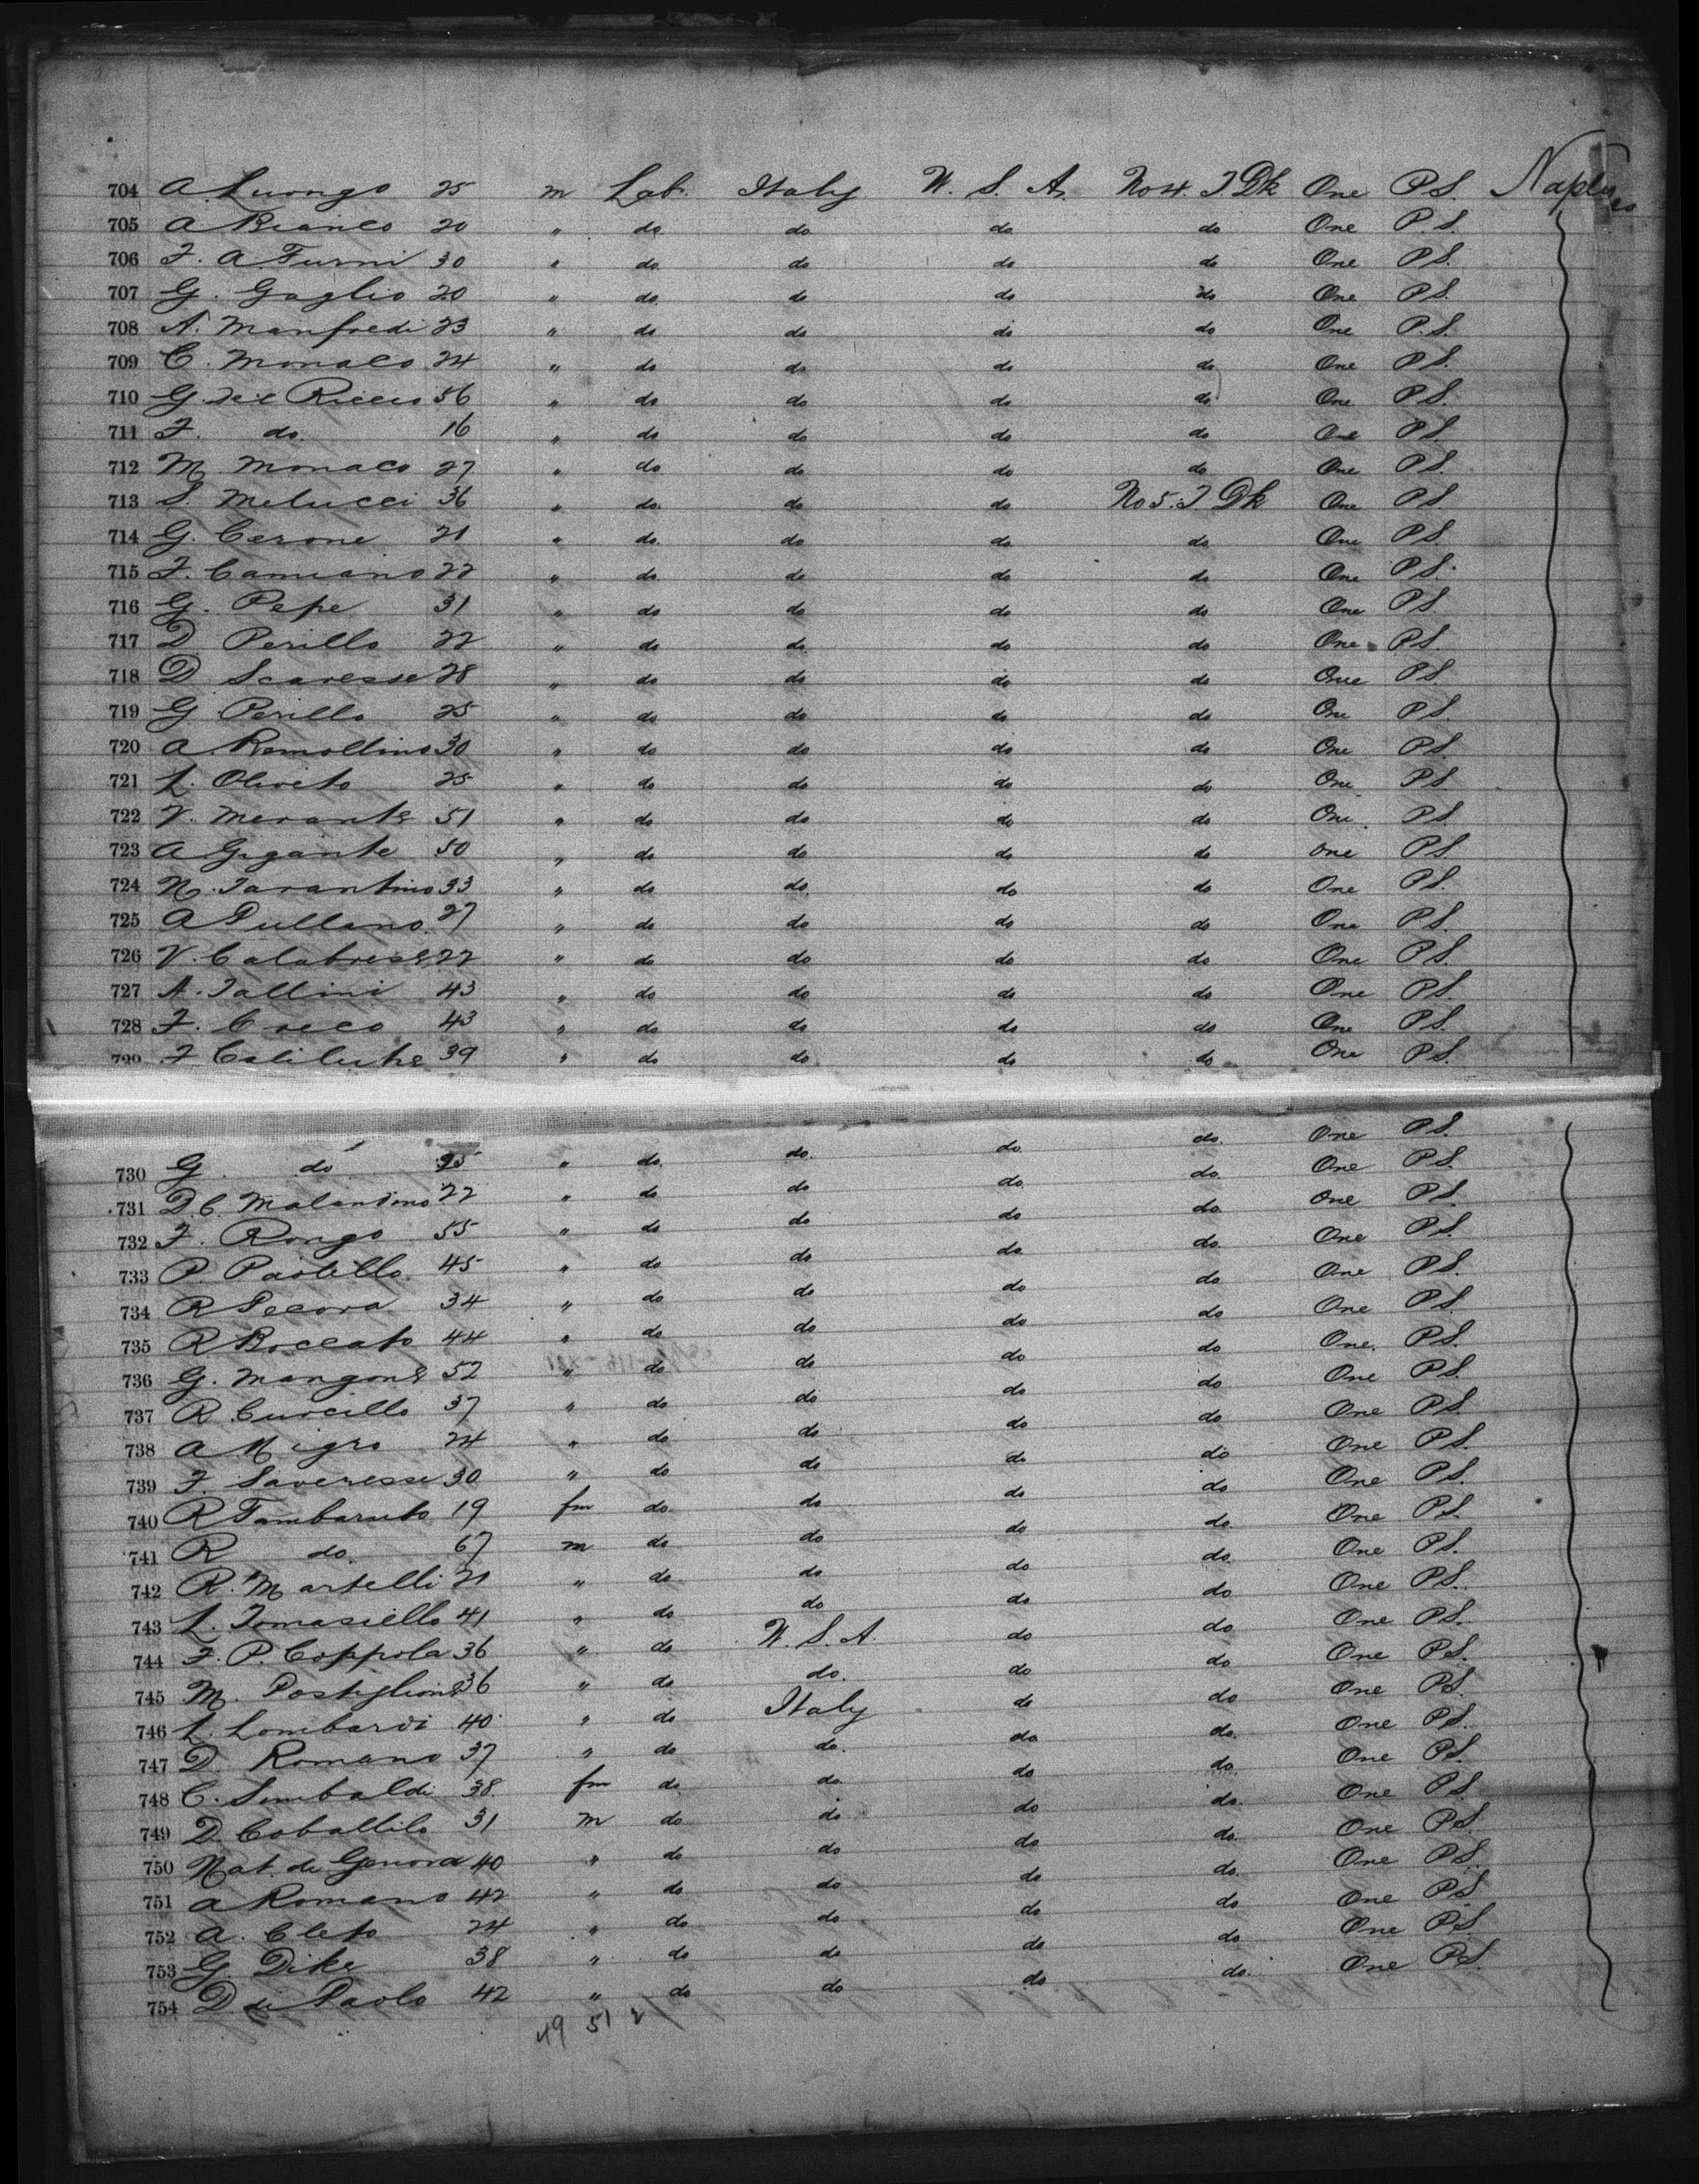 704 A. Luongo 25 m Lab. Italy U. S. A. No 4. T. Dk One P.S. Naples
705 A Bianco 20 " do do do do One P.S.
706 F. A. Furni 30 " do do do do One P.S.
707 G. Gaglio 20 " do do do do One P.S.
708 A. Manfredi 23 " do do do do One P.S.
709 C. Monaco 24 " do do do do One P.S.
710 G. del Riccio 56 " do do do do One P.S.
711 F. do. 16 " do do do do One P.S.
712 M. Monaco 27 " do do do do One P.S.
713 S. Melucci 36 " do. do do No 5. T. Dk One P.S.
714 G. Cerone 21 " do. do do do One P.S.
715 F. Camiano 22 " do. do do do One P.S.
716 G. Pepe 31 " do do do do One P.S.
717 D. Perillo 22 " do do do do One P.S.
718 D Scaresse 28 " do do do do One P.S.
719 G Perillo 25 " do do do do One P.S.
720 A. Remollino 30 " do do do do One P.S.
721 L. Oliveto 25 " do do do do One P.S.
722 V. Merante 51 " do do do do One P.S.
723 A Gigante 50 " do do do do One P.S.
724 N. Tarantino 33 " do do do do One P.S.
725 A Pullano 27 " do do do do One P.S.
726 V. Calabrese 22 " do do do do One P.S.
727 A. Tallini 43 " do do do do One P.S.
728 F. Creco 43 " do do do do One P.S.
729 F 39 " do do do do One P.S.
730 G do 25 " do do do do One P.S.
731 D. C. Malantino 22 " do do do do One P.S.
732 F. Rongo 55 " do do do do One P.S.
733 P. Paolillo 45 " do do do do One P.S.
734 R Pecora 34 " do do do do One P.S.
735 R Boccato 44 " do do do do One P.S.
736 G. Mangone 52 " do do do do One P.S.
737 R. Curcillo 37 " do do do do One P.S.
738 A Migro 24 " do do do do One P.S.
739 F. Saveresse 30 " do do do do One P.S.
740 R Tambaruto 19 fm do do do do One P.S.
741 R do. 67 m do do do do One P.S.
742 R. Martelli 21 " do do do do One P.S.
743 L. Tomasiello 41 " do do do do One P.S.
744 F. P. Coppola 36 " do U. S. A. do do One P.S.
745 M. Postiglione 36 " do do. do do One P.S.
746 L. Lombardi 40 " do Italy do do One P.S.
747 D. Romano 37 " do do. do do. One P.S.
748 C. Simbaldi 38 fm do do do do One P.S.
749 D. Coballilo 31 m do do do do. One P.S.
750 Nat. de Genova 40 " do do do do. One P.S.
751 A Romano 42 " do do do do. One P.S.
752 A. Cleto 24 " do do do do One P.S.
753 G. Dike 38 " do do do do One P.S.
754 D di Paolo 42 " do do do do. One P.S.
49 51 2